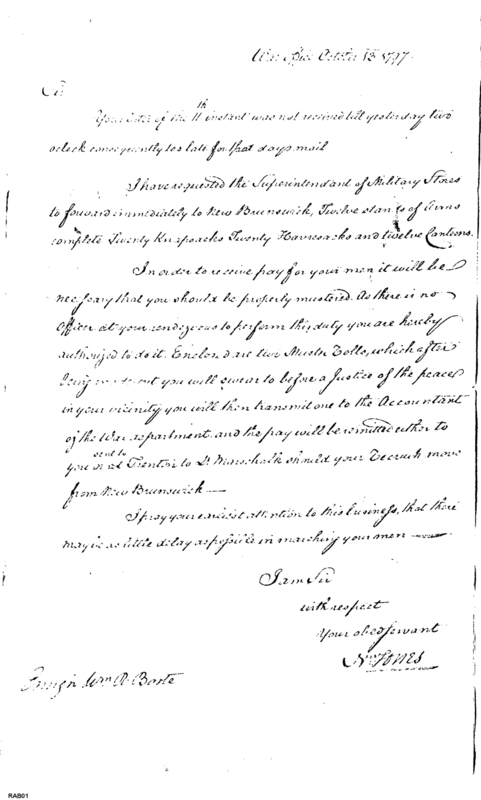 War Office October 13th 1797.
Sir
Your letter of the 11th instant was not received till yesterday two
oclock consequently too late for that days mail
I have requested the Superintendant of Military Stores
to forward immediately to New Brunswick, Twelve stands of Arms
complete Twenty Knapsacks Twenty Haversacks and twelve Canteens.
In order to receive pay for your men it will be
necessary that you should be properly mustered. As there is no
Officer at your rendezvous to perform this duty you are hereby
authorized to do it. Enclosed are two Muster Rolls, which after
being made out you will swear to before a Justice of the peace
in your vicinity you will then transmit one to the Accountant
of the War department and the pay will be remitted either to
sent to
you or at Trenton to Lt Marschalk should your Recruits move
from New Brunswick
I pray your earliest attention to this business, that there
may be as little delay as possible in marching your men
I am Sir
with respect
Your obed servant
Wm Jones
Ensign Wm R. Boote
RAB01